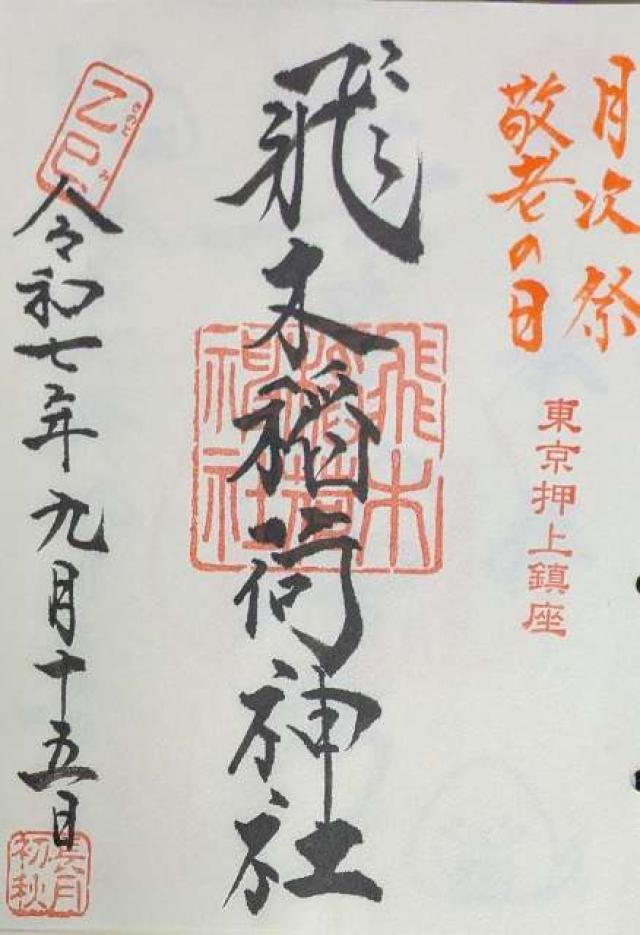 月次祭
敬老の日
東京押上鎮座
飛木稲荷神社
飛木稲荷神社
乙巳
きのと み
令和七年九月十五日
長月
初秋